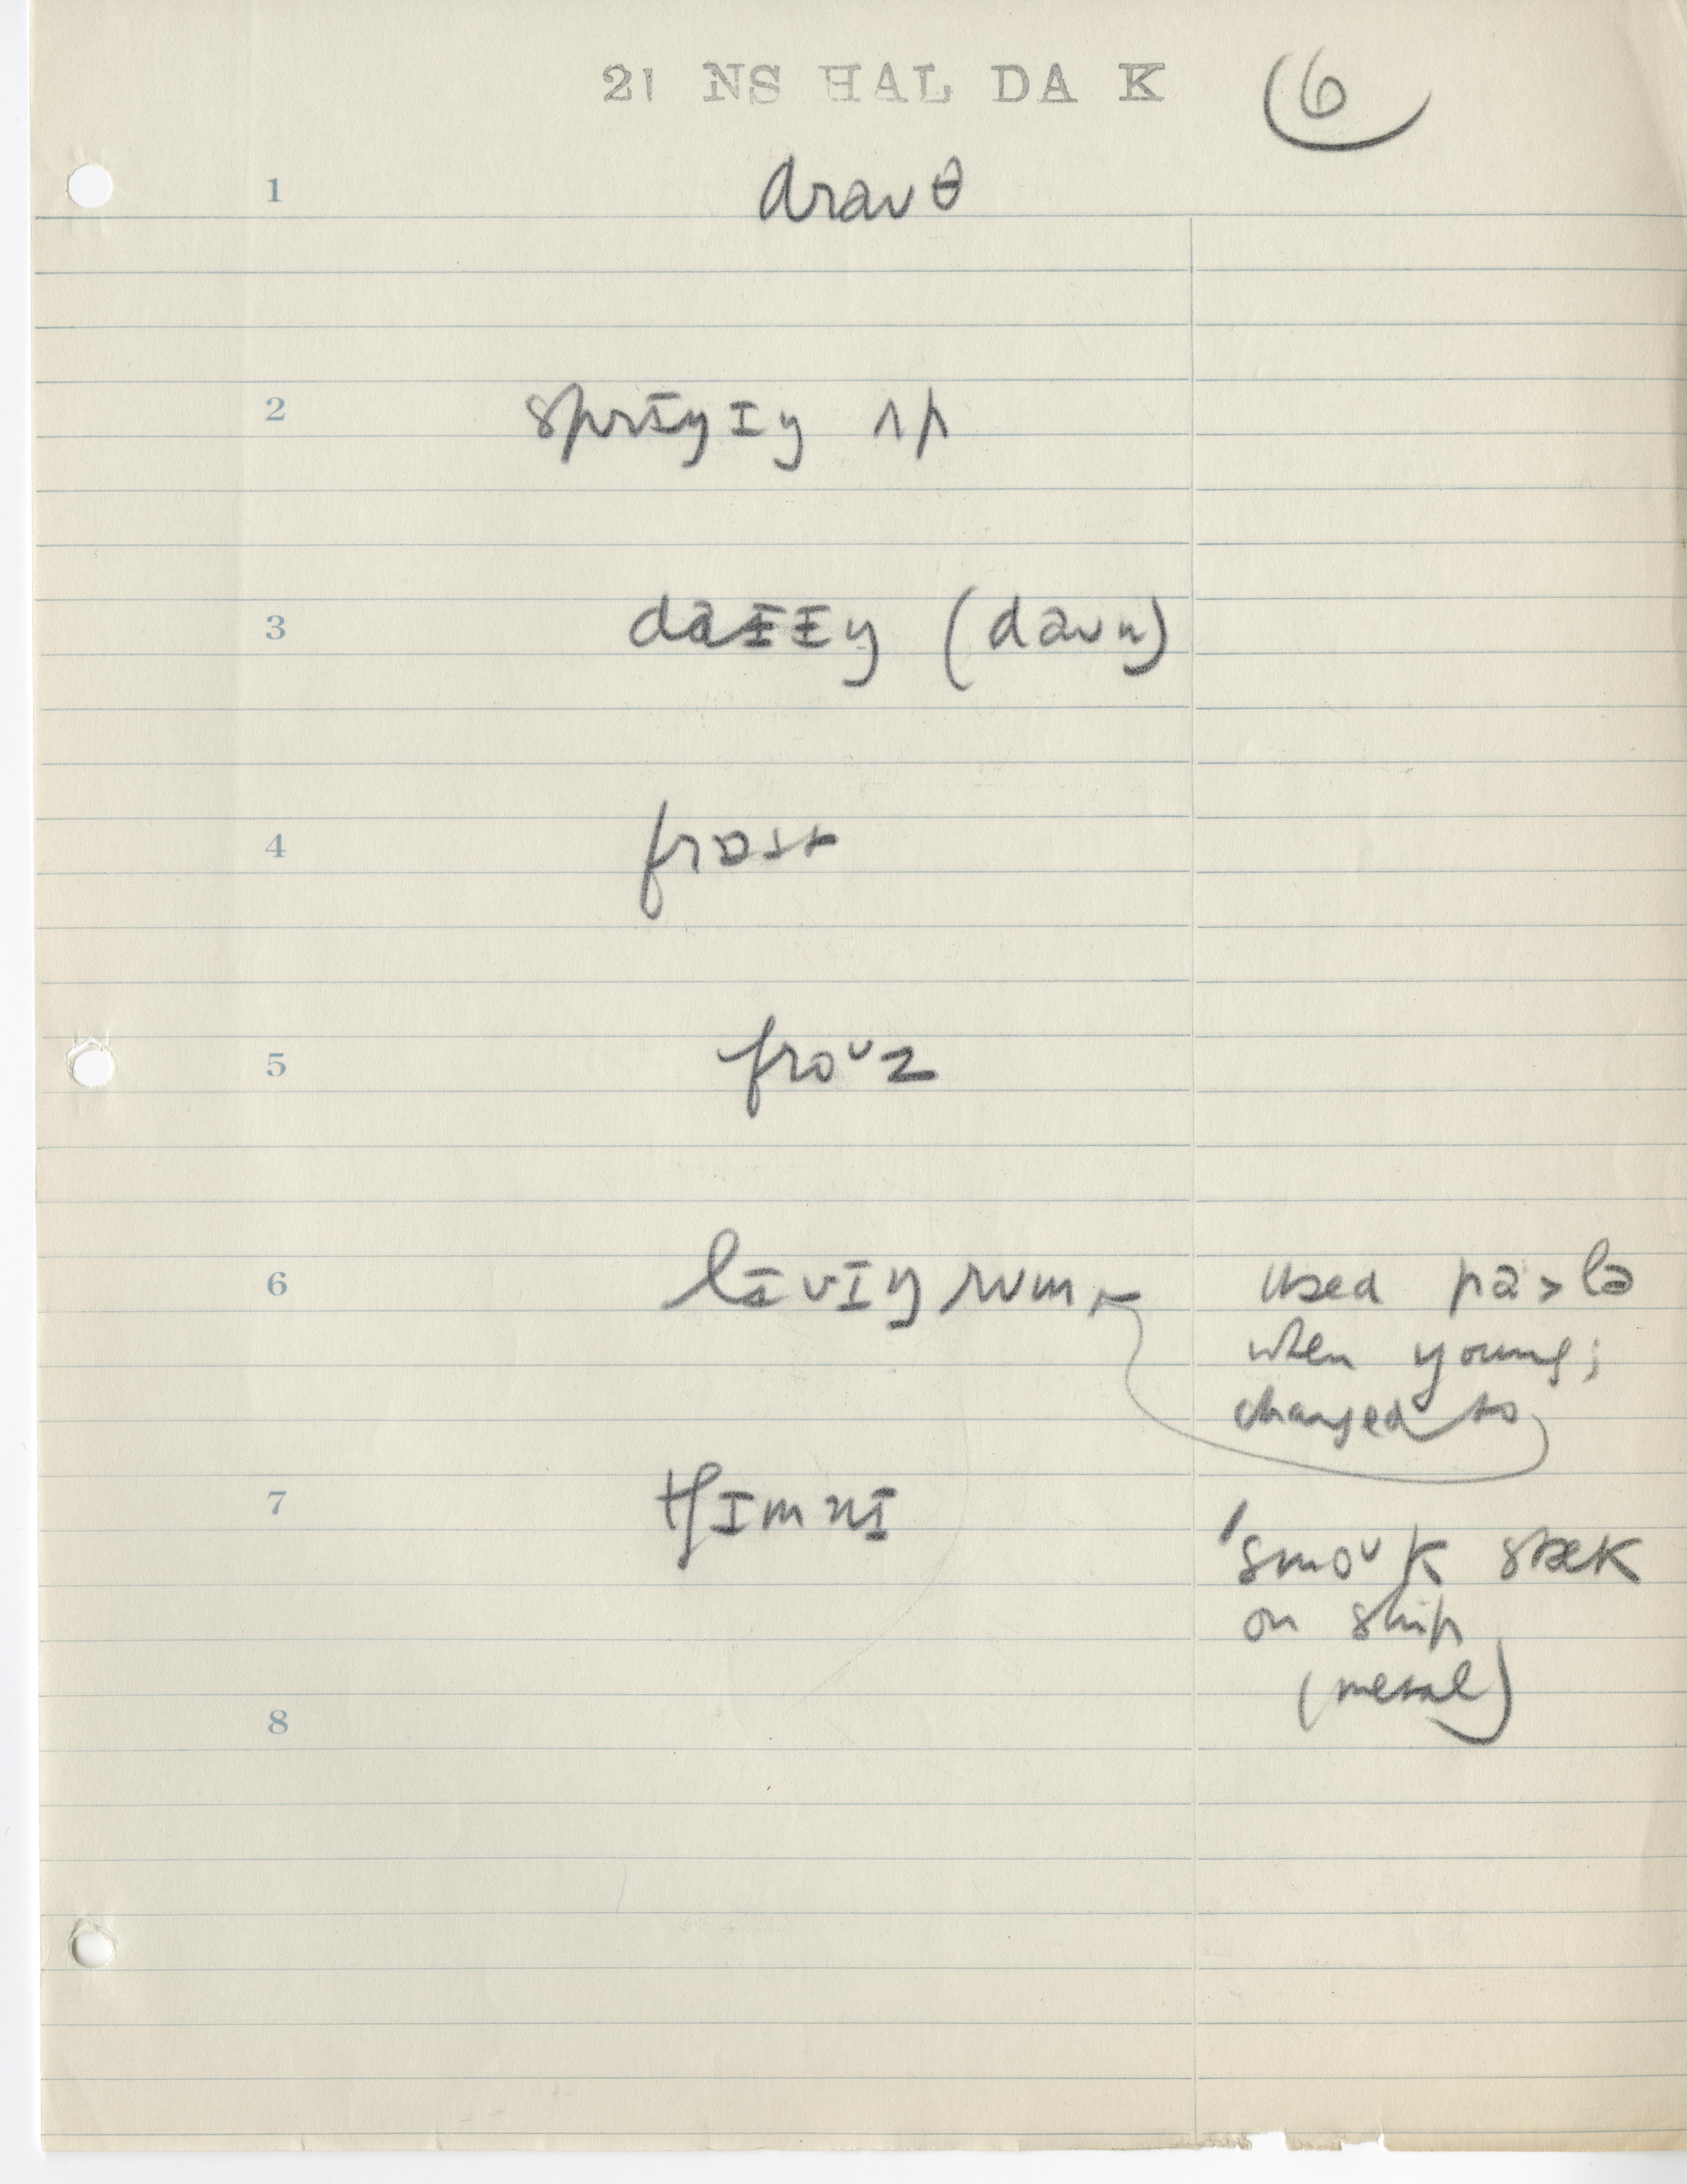 21 NS HAL DA K 6
1 draʊθ
2 sprɪŋɪŋ ʌp
3 daɪɪŋ (daʊn)
4 frɒst
5 froᶷz
6 lɪvɪŋ rum
used pa>lə
when young;
changed to
7 tʃɪmnɪ
'smoᶷk stæk
on ship
(metal)
8